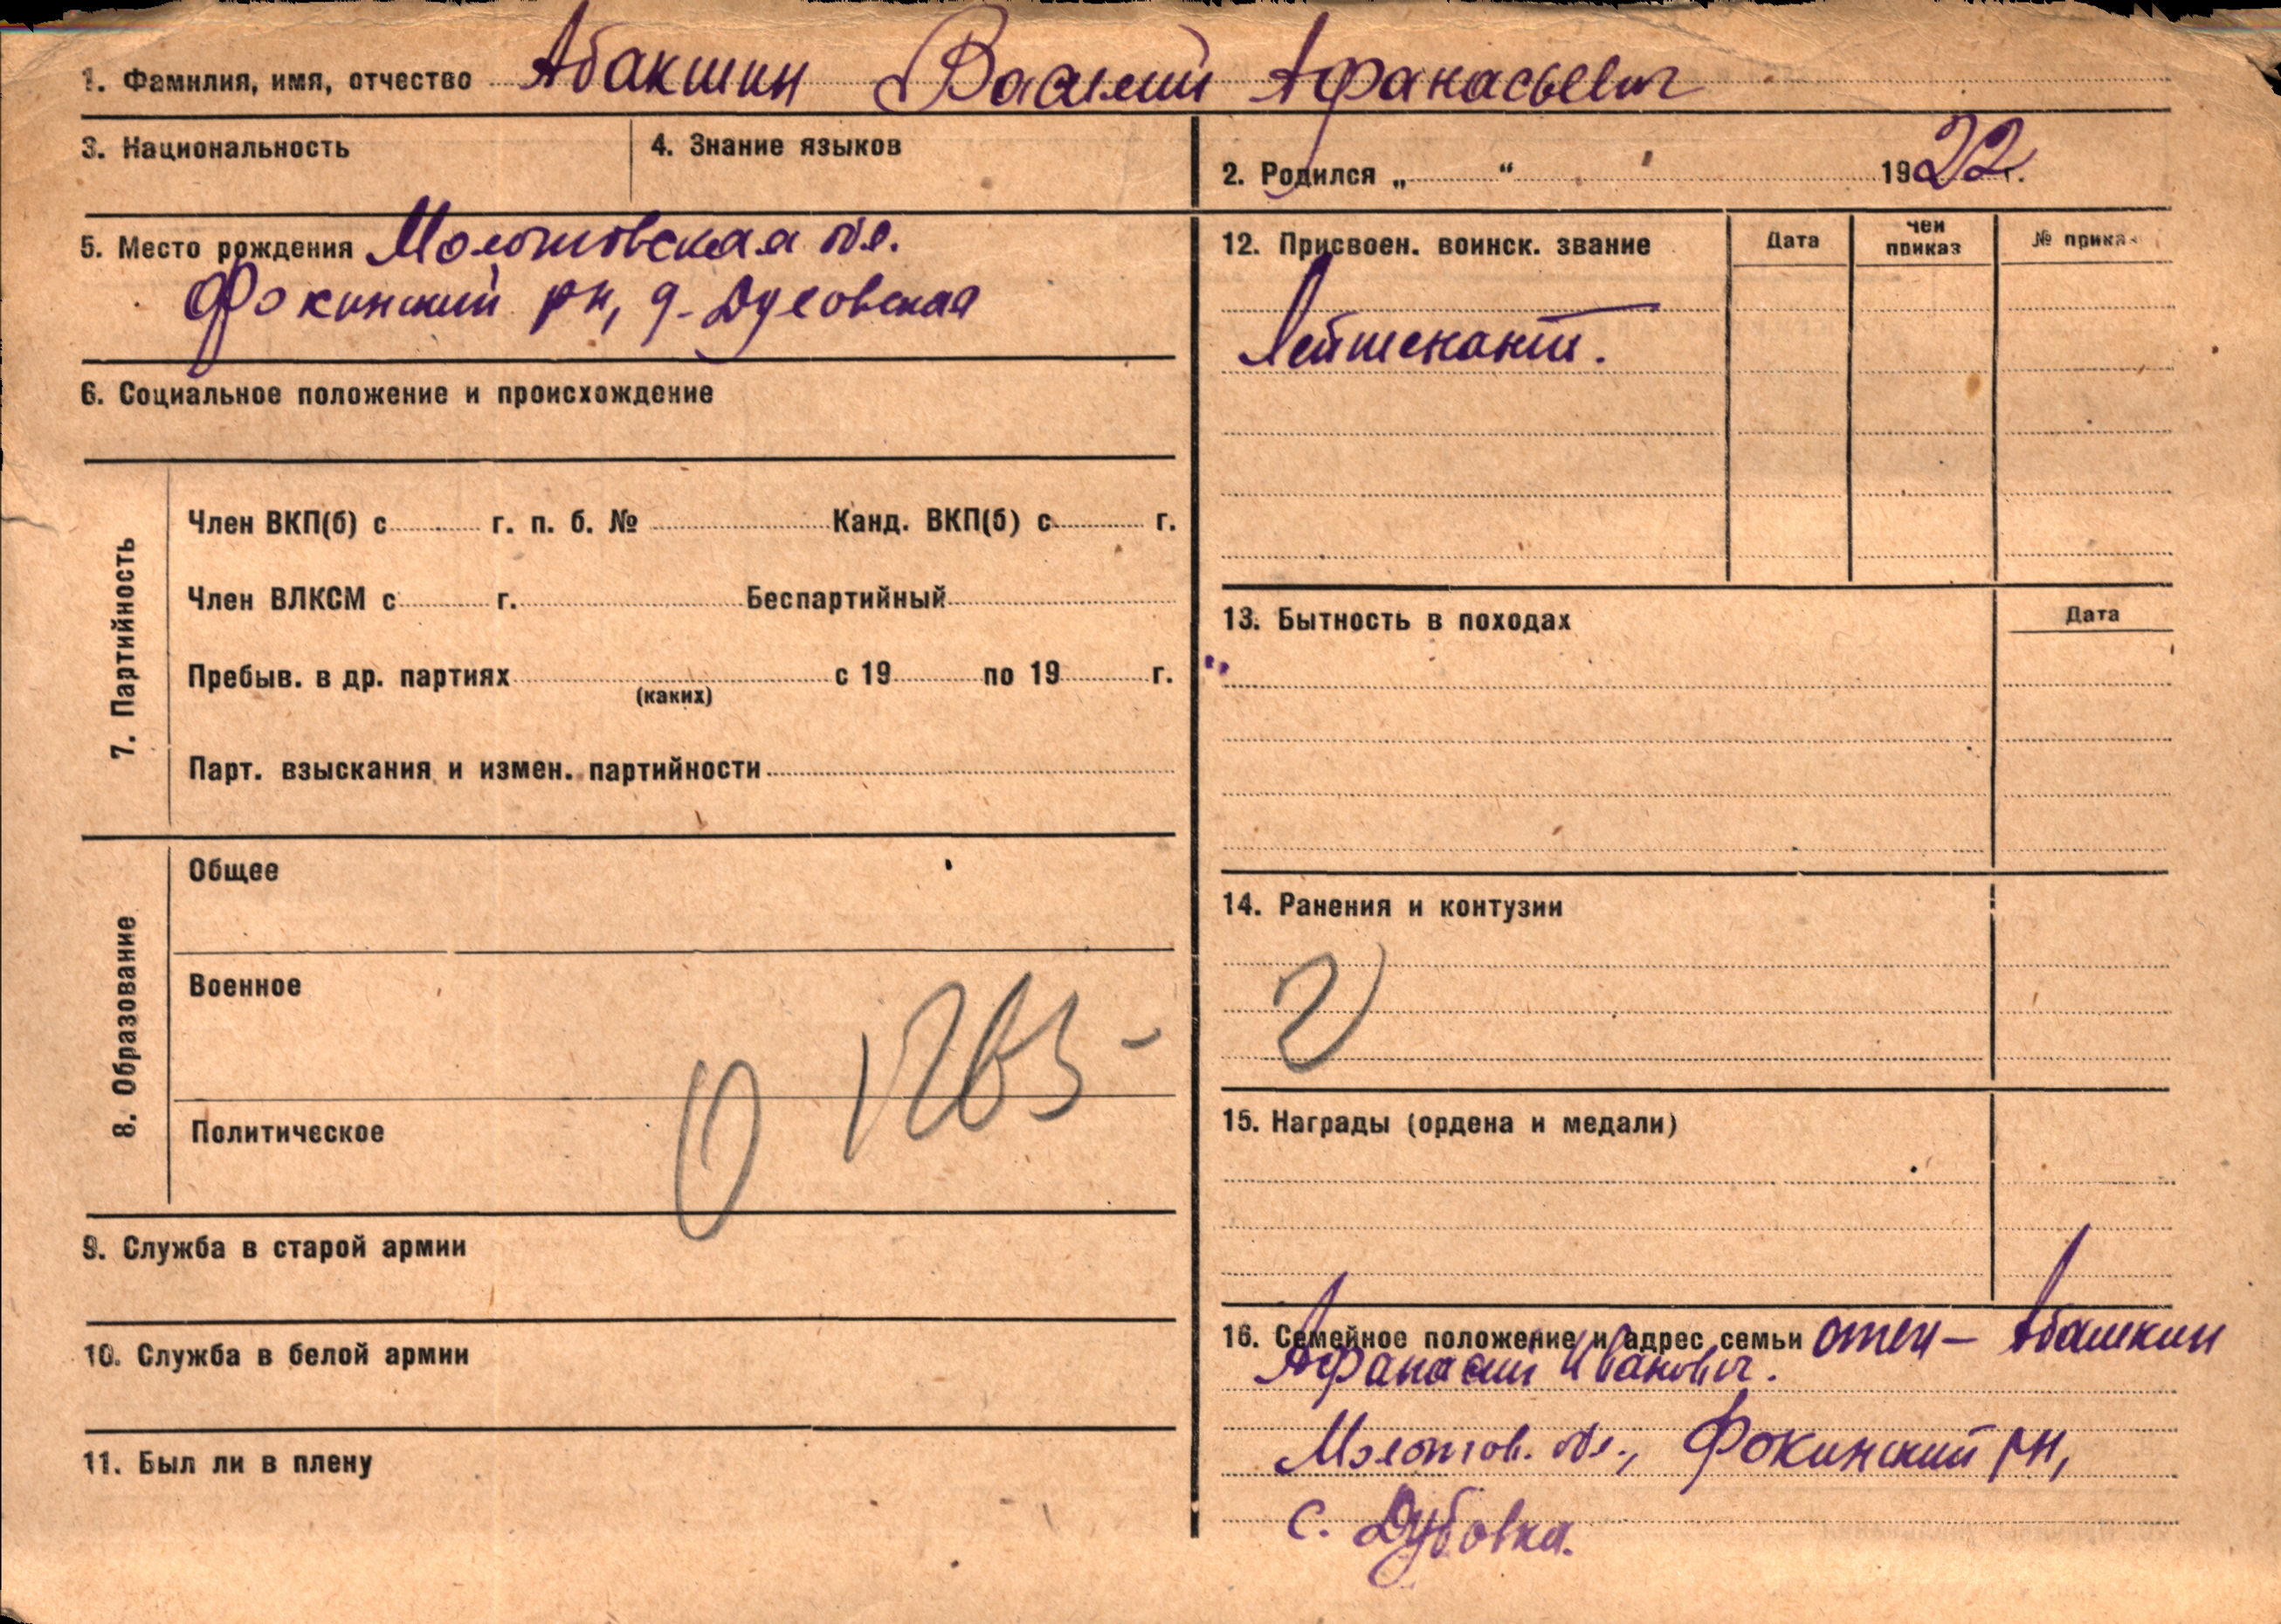 1. Фамилия, имя, отчество Абакшин Василий Афанасьевич
3. Национальность
4. Знание языков
2. Родился „ “ 1922 г.
5. Место рождения Молотовская обл.
Фокинский рн, д-
6. Социальное положение и происхождение
7. Партийность
Член ВКП(б) с г. п. б. № Канд. ВКП(б) с г.
Член ВЛКСМ с г. Беспартийный
Пребыв. в др. партиях с 19 по 19 г.
(каких)
Парт. взыскания и измен. партийности
8. Образование
Общее
Военное
Политическое
9. Служба в старой армии
10. Служба в белой армии
11. Был ли в плену
12. Присвоен. воинск. звание
Дата
чей приказ
№ приказ
Лейтенант.
13. Бытность в походах
Дата
14. Ранения и контузии
15. Награды (ордена и медали)
16. Семейное положение и адрес семьи отец – Абашкин
Афанасий Иванович.
Молотов. обл., Фокинский рн,
с. Дубовка.